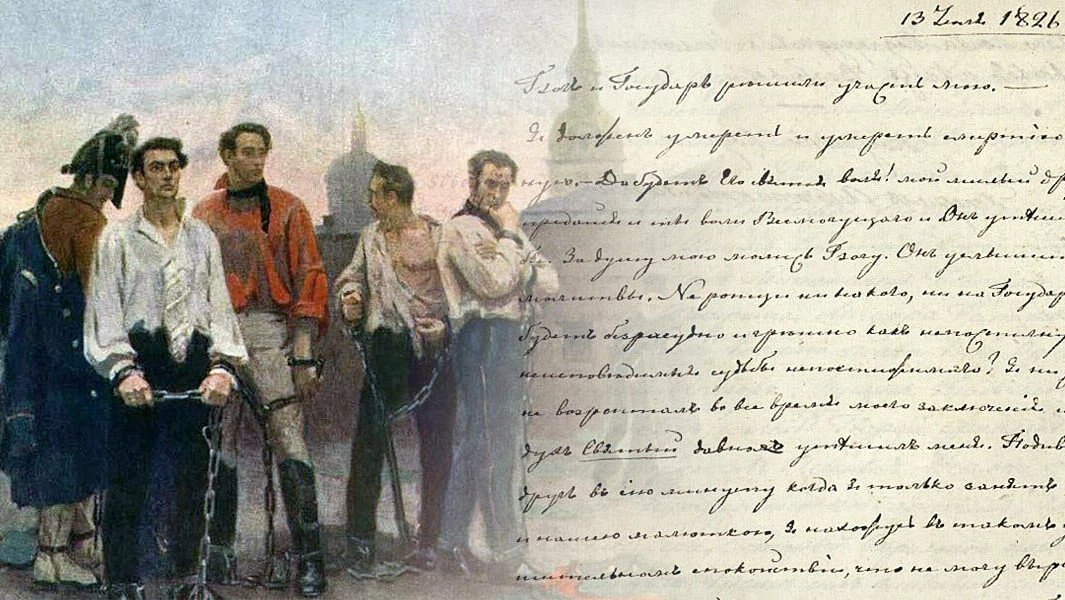 13 Іюля 1826
Богъ и Государь рѣшили участь мою. —
Я долженъ умереть и умереть смертію
ную. — Да будетъ Его святая воля! мой милый др
предайся и ты волѣ Всемогущаго и Онъ утѣши
За душу мою молись Богу. Онъ услышит
молитвы. Не ропщи ни на него, ни на Государ
будетъ безрасудно и грѣшно
неисповѣдимые судьбы непостижимаго? Я ни
не возропталъ во все время моего заключенія
духъ Святый дивно утѣшалъ меня. Подив
другъ въ сію минуту когда я только занятъ
и нашею малюткою, я нахожусь въ такомъ
шительномъ спокойствіи, что не могу выра